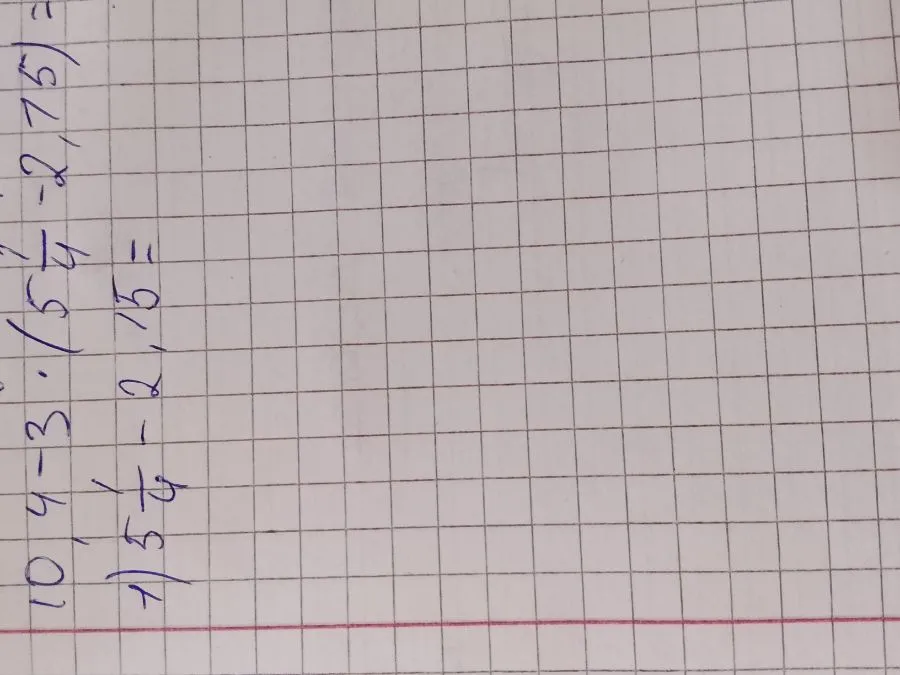 10,4-3·(5 1/4 -2,75)=
1) 5 1/4 - 2,15=